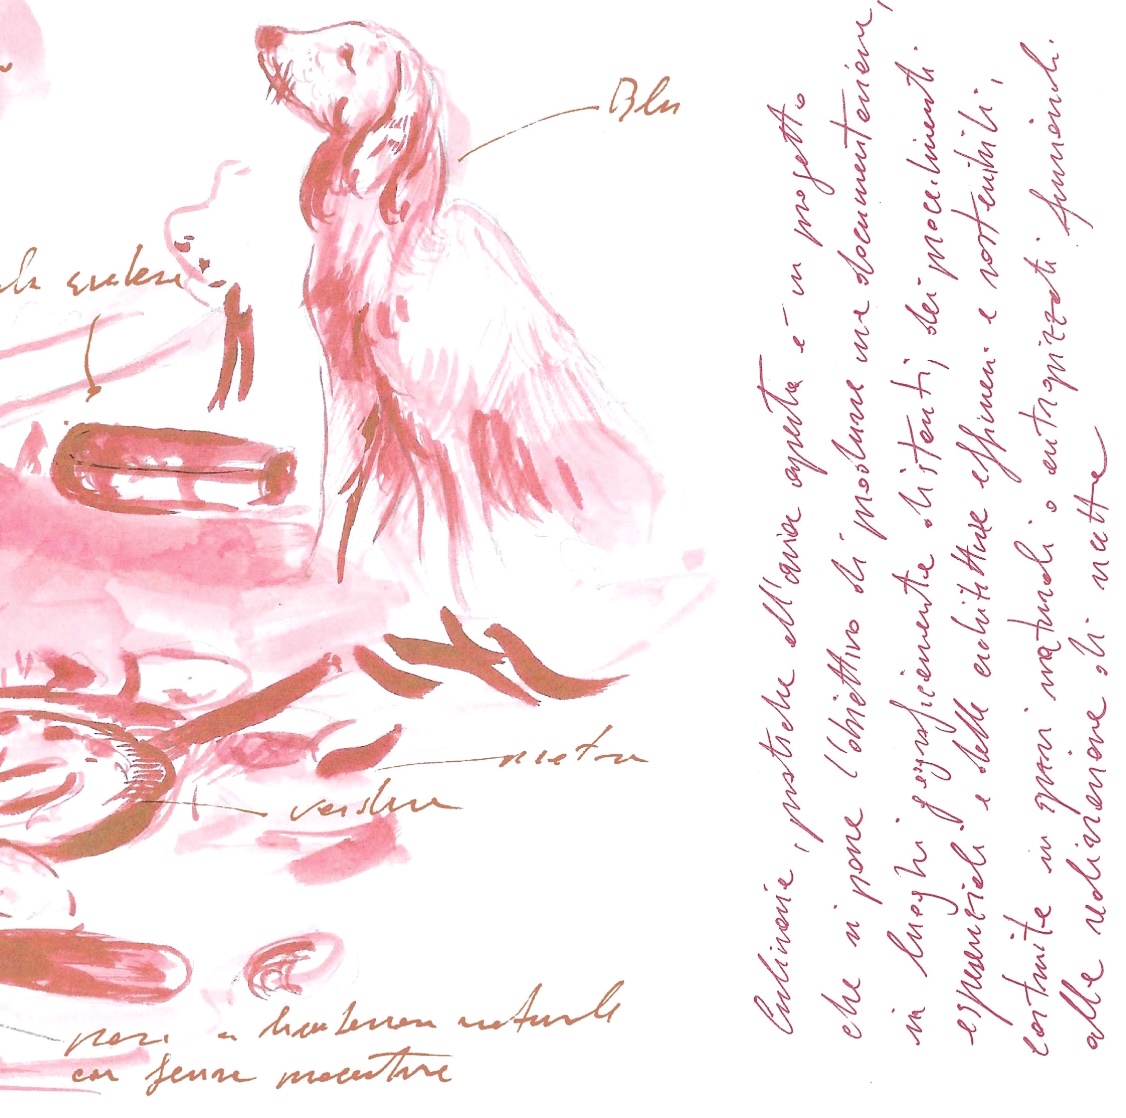 Blu
pietra
verdure
pane a lievitazione naturale
con farine
Culinarie, pratiche all'aria aperta è un progetto
che si pone l'obiettivo di produrre una documentazione,
in luoghi geograficamente distanti, dei procedimenti
esperienziali e delle architetture effimere e sostenibili,
costruite in spazi naturali o antropizzati funzionali
alla realizzazione di